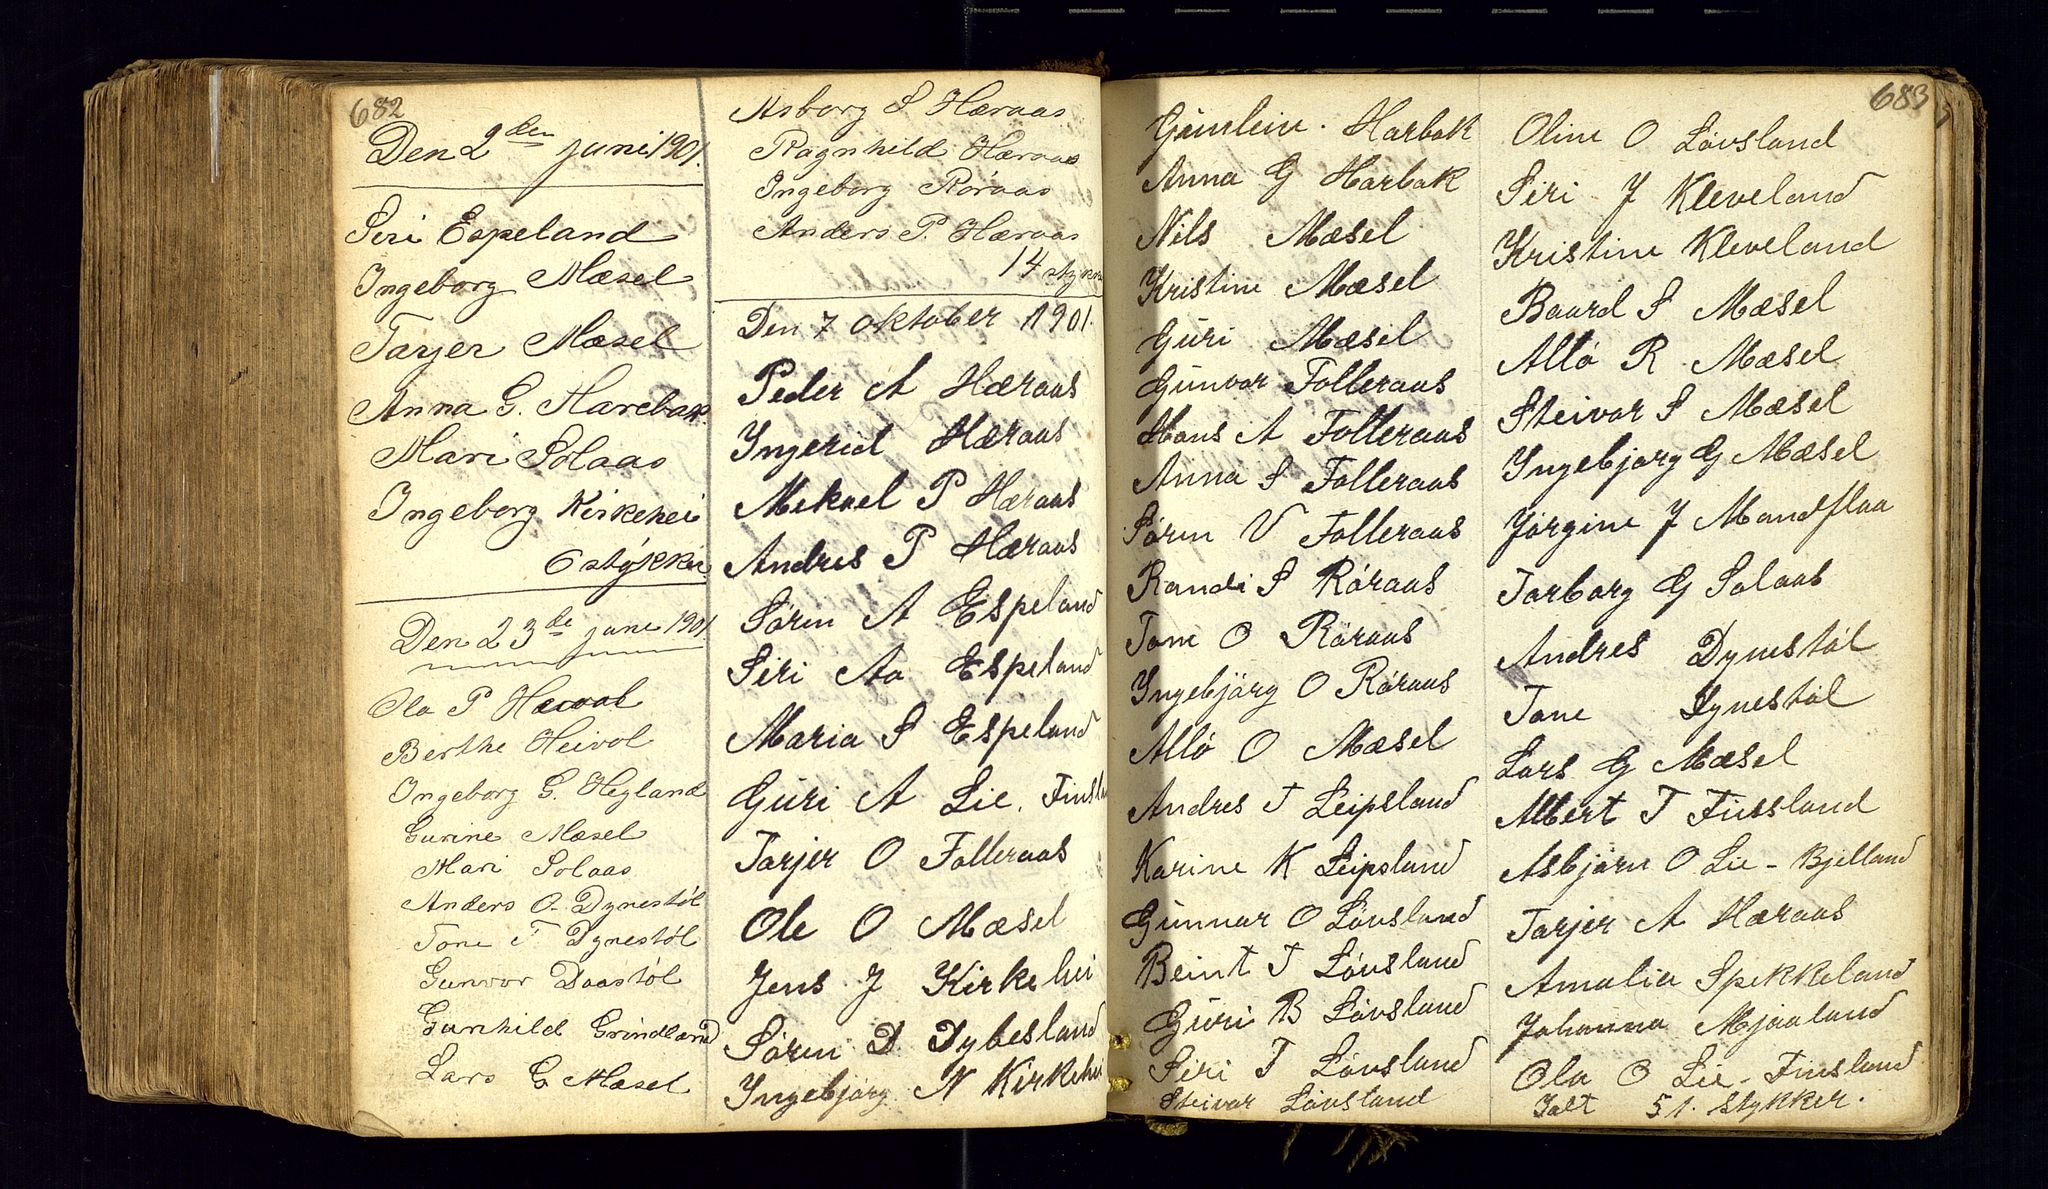 682
Den 2den juni 1901.
Siri Espeland
Ingeborg Mæsel
Tarjer Mæsel
Anna G. Harebak.
Mari Solaas
Ingeborg Kirkehei
6 stykker.
Den 23de june 1901
Ola P Hæivol
Berthe Heivol
Ingeborg G. Hegland
Gurine Mæsel
Mari Solaas
Anders O. Dynestøl
Tone T Dynestøl
Gunvor Daastøl
Gunhild Grindland
Lars G Mæsel
Asborg S Hæraas
Ragnhild Hæraas
Ingeborg Røraas
Anders P. Hæraas
14 stykker
Den 7 oktober 1901.
Peder A Hæraas
Yngerid Hæraas
Mekael P Hæraas
Andres P Hæraas
Søren A Espeland
Siri Aa Espeland
Maria S Espeland
Guri A Lie. Finsla
Tarjer O Falleraas
Ole O Mæsel
Jens J Kirkehei
Søren D Dybesland
Yngebjørg N Kirkehei
683
Gunlein. Harbak
Anna G Harbak
Nils Mæsel
Kristine Mæsel
Guri Mæsel
Gunvor Folleraas
Hans A Folleraas
Anna S Folleraas
Søren V Folleraas
Randi S Røraas
Tone O Røraas
Yngebjørg O Røraas
Allo O Mæsel
Andres T Leipsland
Karine K Leipsland
Gunnar O Løvsland
Beint T Løvsland
Guri B Løvsland
Siri T Løvsland
Steivar Løvsland
Oline O Løvsland
Siri J Kleveland
Kristine Kleveland
Baard S Mæsel
Allo R Mæsel
Steivor S Mæsel
Yngebjørg G Mæsel
Jørgine J Mandflaa
Torborg G Solaas
Andres Dynestøl
Tone Dynestøl
Lars G Mæsel
Albert T Finsland
Asbjørn O Lie - Bjelland
Tarjer A Hæraas
Amalia Spikkeland
Johanna Mjaaland
Ola O Lie - Finsland
Ialt 51. Stykker.